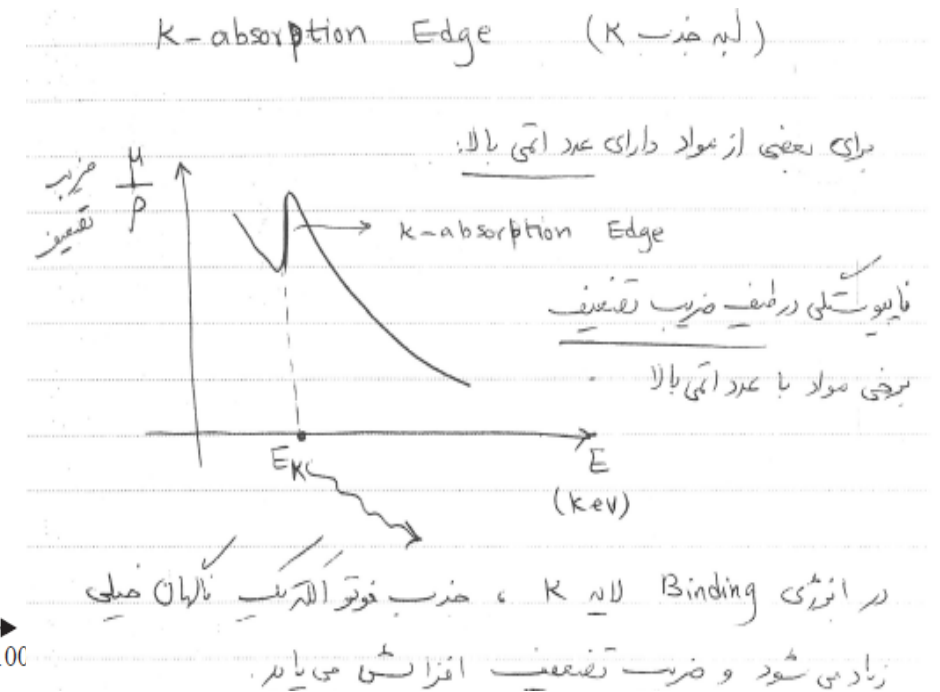 k-absorption Edge (لبه جذب K)
برای بعضی از مواد دارای عدد اتمی بالا:
ضریب تضعیف
μ/ρ
k-absorption Edge
ناپیوستگی در طیف ضریب تضعیف
برخی مواد با عدد اتمی بالا
EK
E
(kev)
در انرژی Binding لایه K ، جذب فوتوالکتریک ناگهان خیلی
زیاد می شود و ضریب تضعیف افزایش می یابد.
100